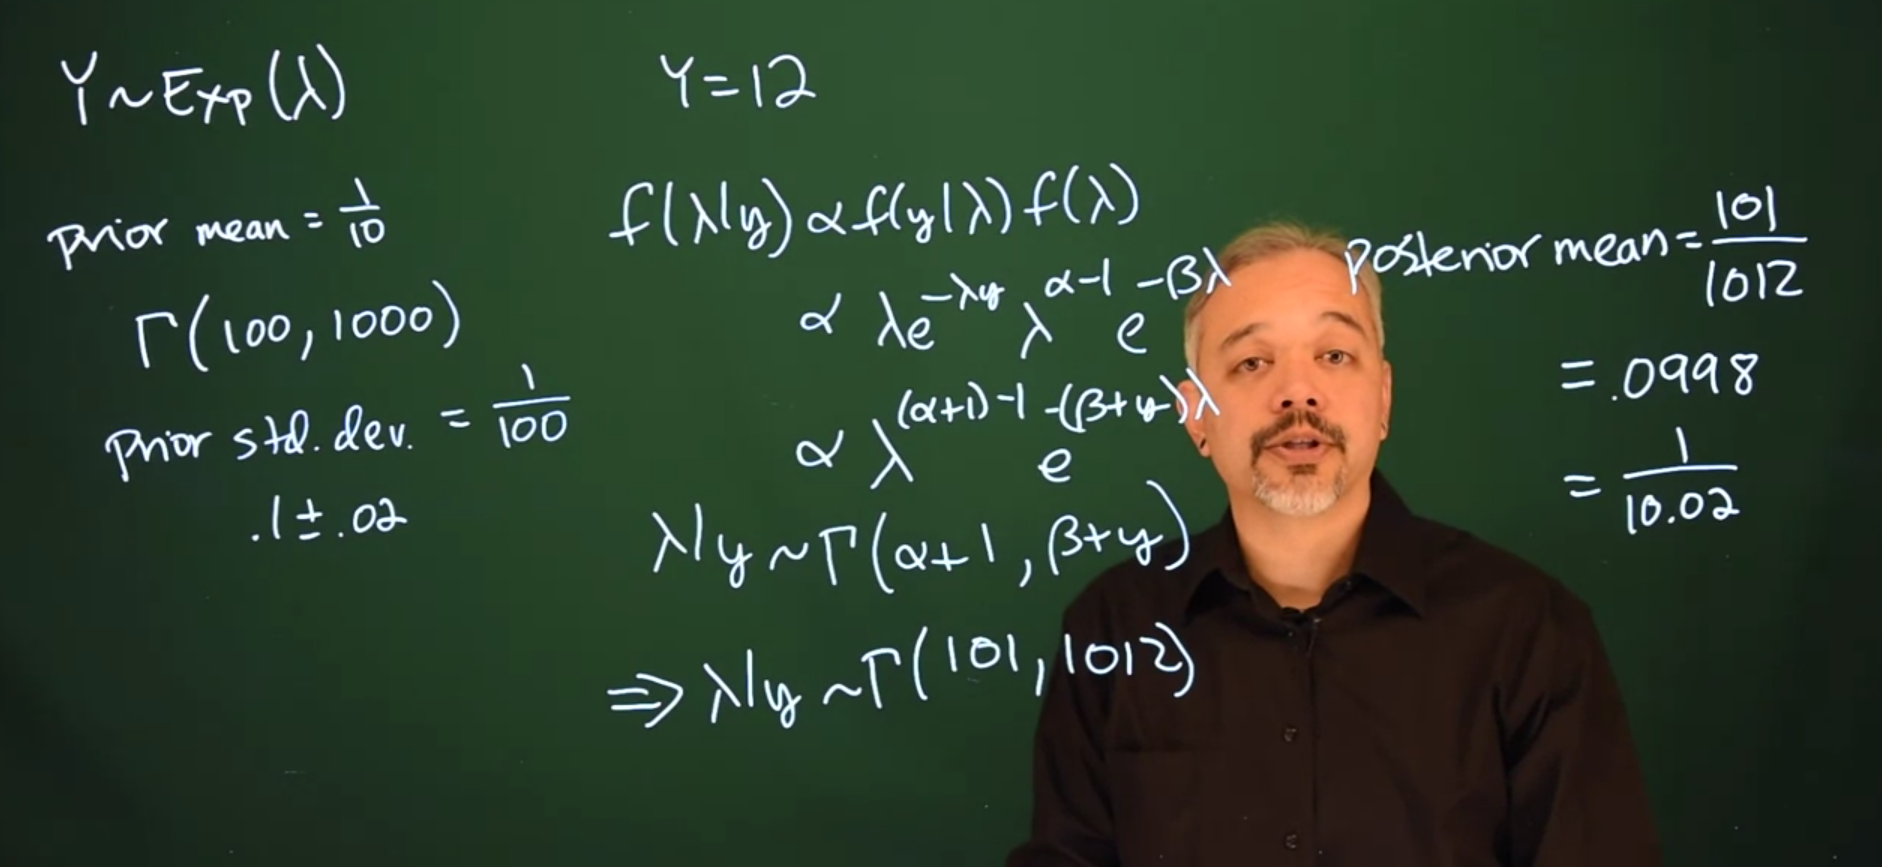 Y~Exp(λ)
prior mean = 1/10
Γ(100, 1000)
Prior std. dev. = 1/100
.1 ± .02
Y=12
f(λ|y) ∝ f(y|λ) f(λ)
∝ λe^(-λy) λ^(α-1) e^(-βλ)
∝ λ^((α+1)-1) e^(-(β+y)λ)
λ|y ~ Γ(α+1, β+y)
⇒ λ|y ~ Γ(101, 1012)
posterior mean = 101/1012
= .0998
= 1/10.02